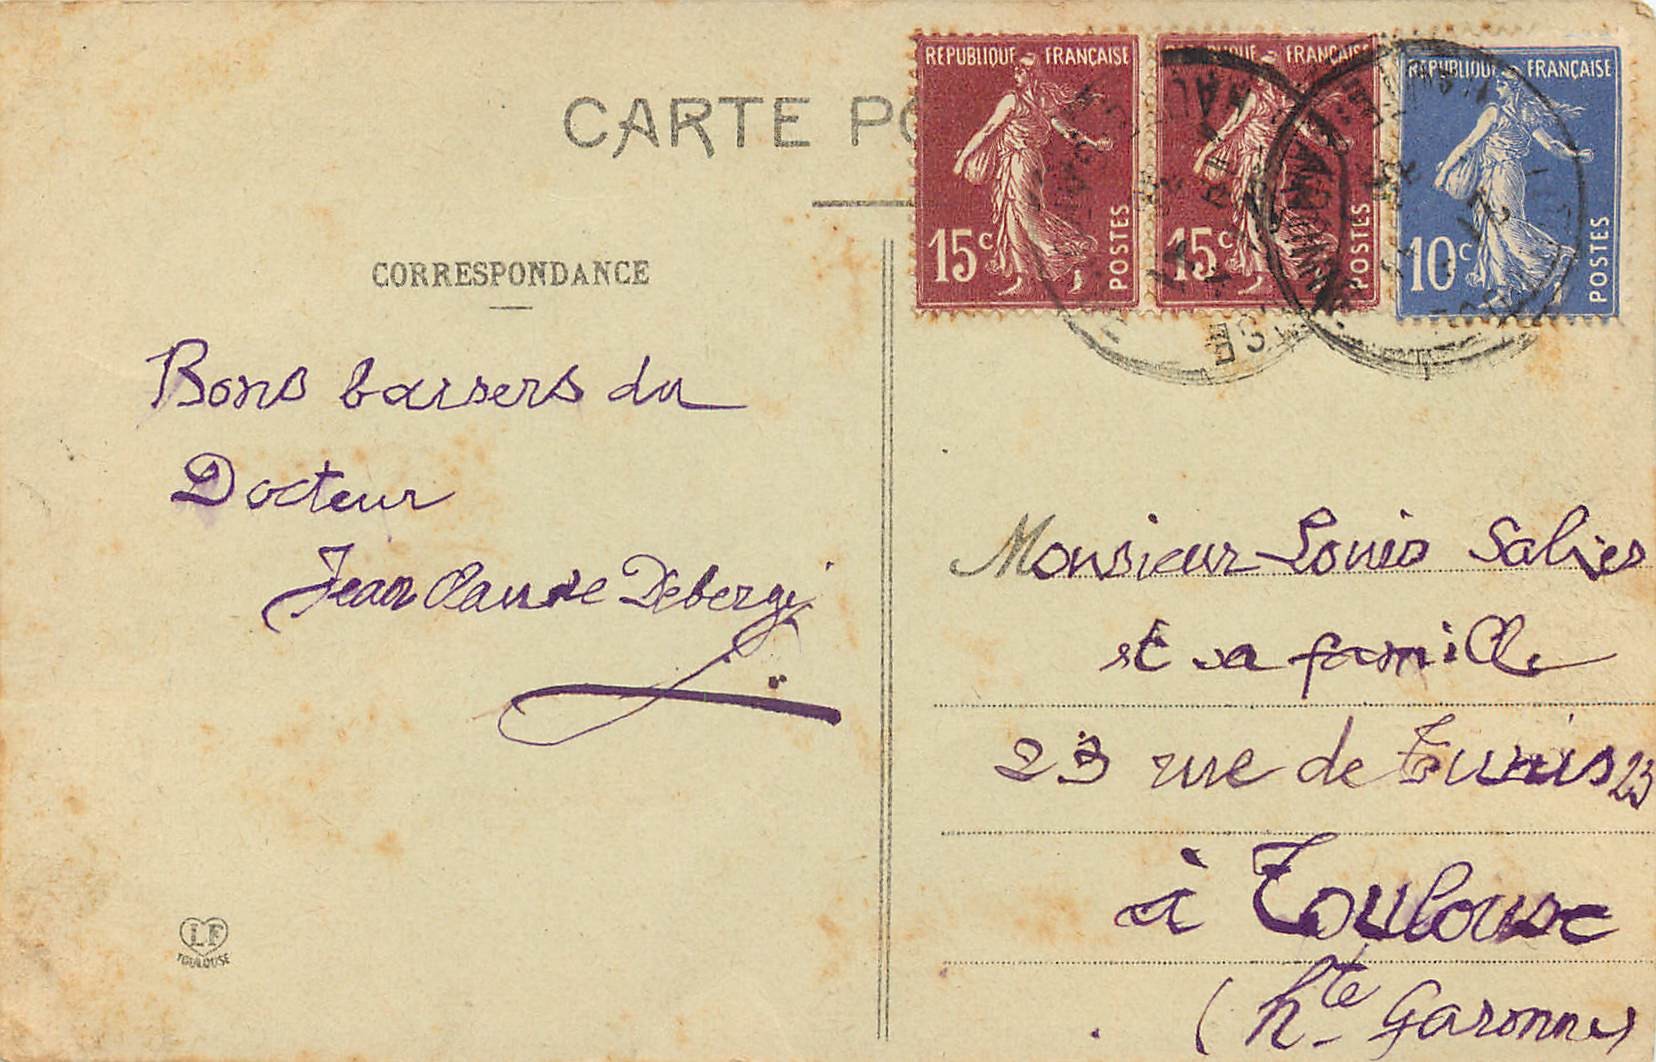 CARTE PO
REPUBLIQUE FRANÇAISE
15c POSTES
REPUBLIQUE FRANÇAISE
15c POSTES
REPUBLIQUE FRANÇAISE
10c POSTES
CORRESPONDANCE
Bons baisers du
Docteur
Jean Claude Debergé
Monsieur Louis Salies
et sa famille
23 rue de Tunis 23
à Toulouse
(hte Garonne)
LF
TOULOUSE